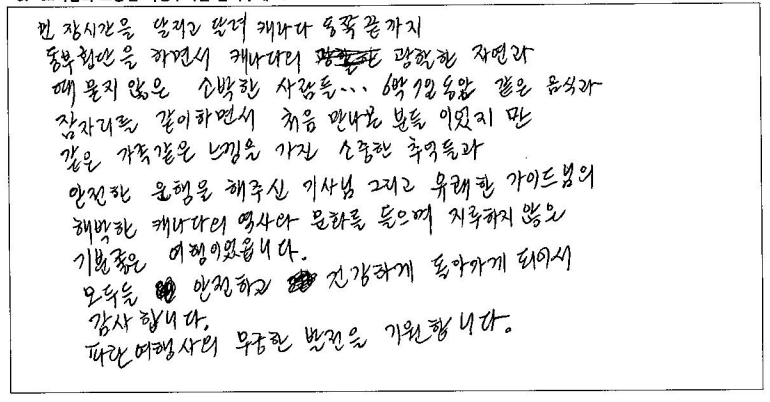 먼 장시간을 달리고 달려 캐나다 동쪽 끝까지
동부횡단을 하면서 캐나다의 광활한 자연과
때 묻지 않은 소박한 사람들... 6박 7일 동안 같은 음식과
잠자리를 같이하면서 처음 만나본 분들 이었지 만
같은 가족같은 느낌을 가진 소중한 추억들과
안전한 운행을 해주신 기사님 그리고 유쾌한 가이드님의
해박한 캐나다의 역사와 문화를 들으며 지루하지 않은
기분좋은 여행이었읍니다.
모두들 안전하고 건강하게 돌아가게 되어서
감사 합니다.
파란여행사의 무궁한 발전을 기원합니다.